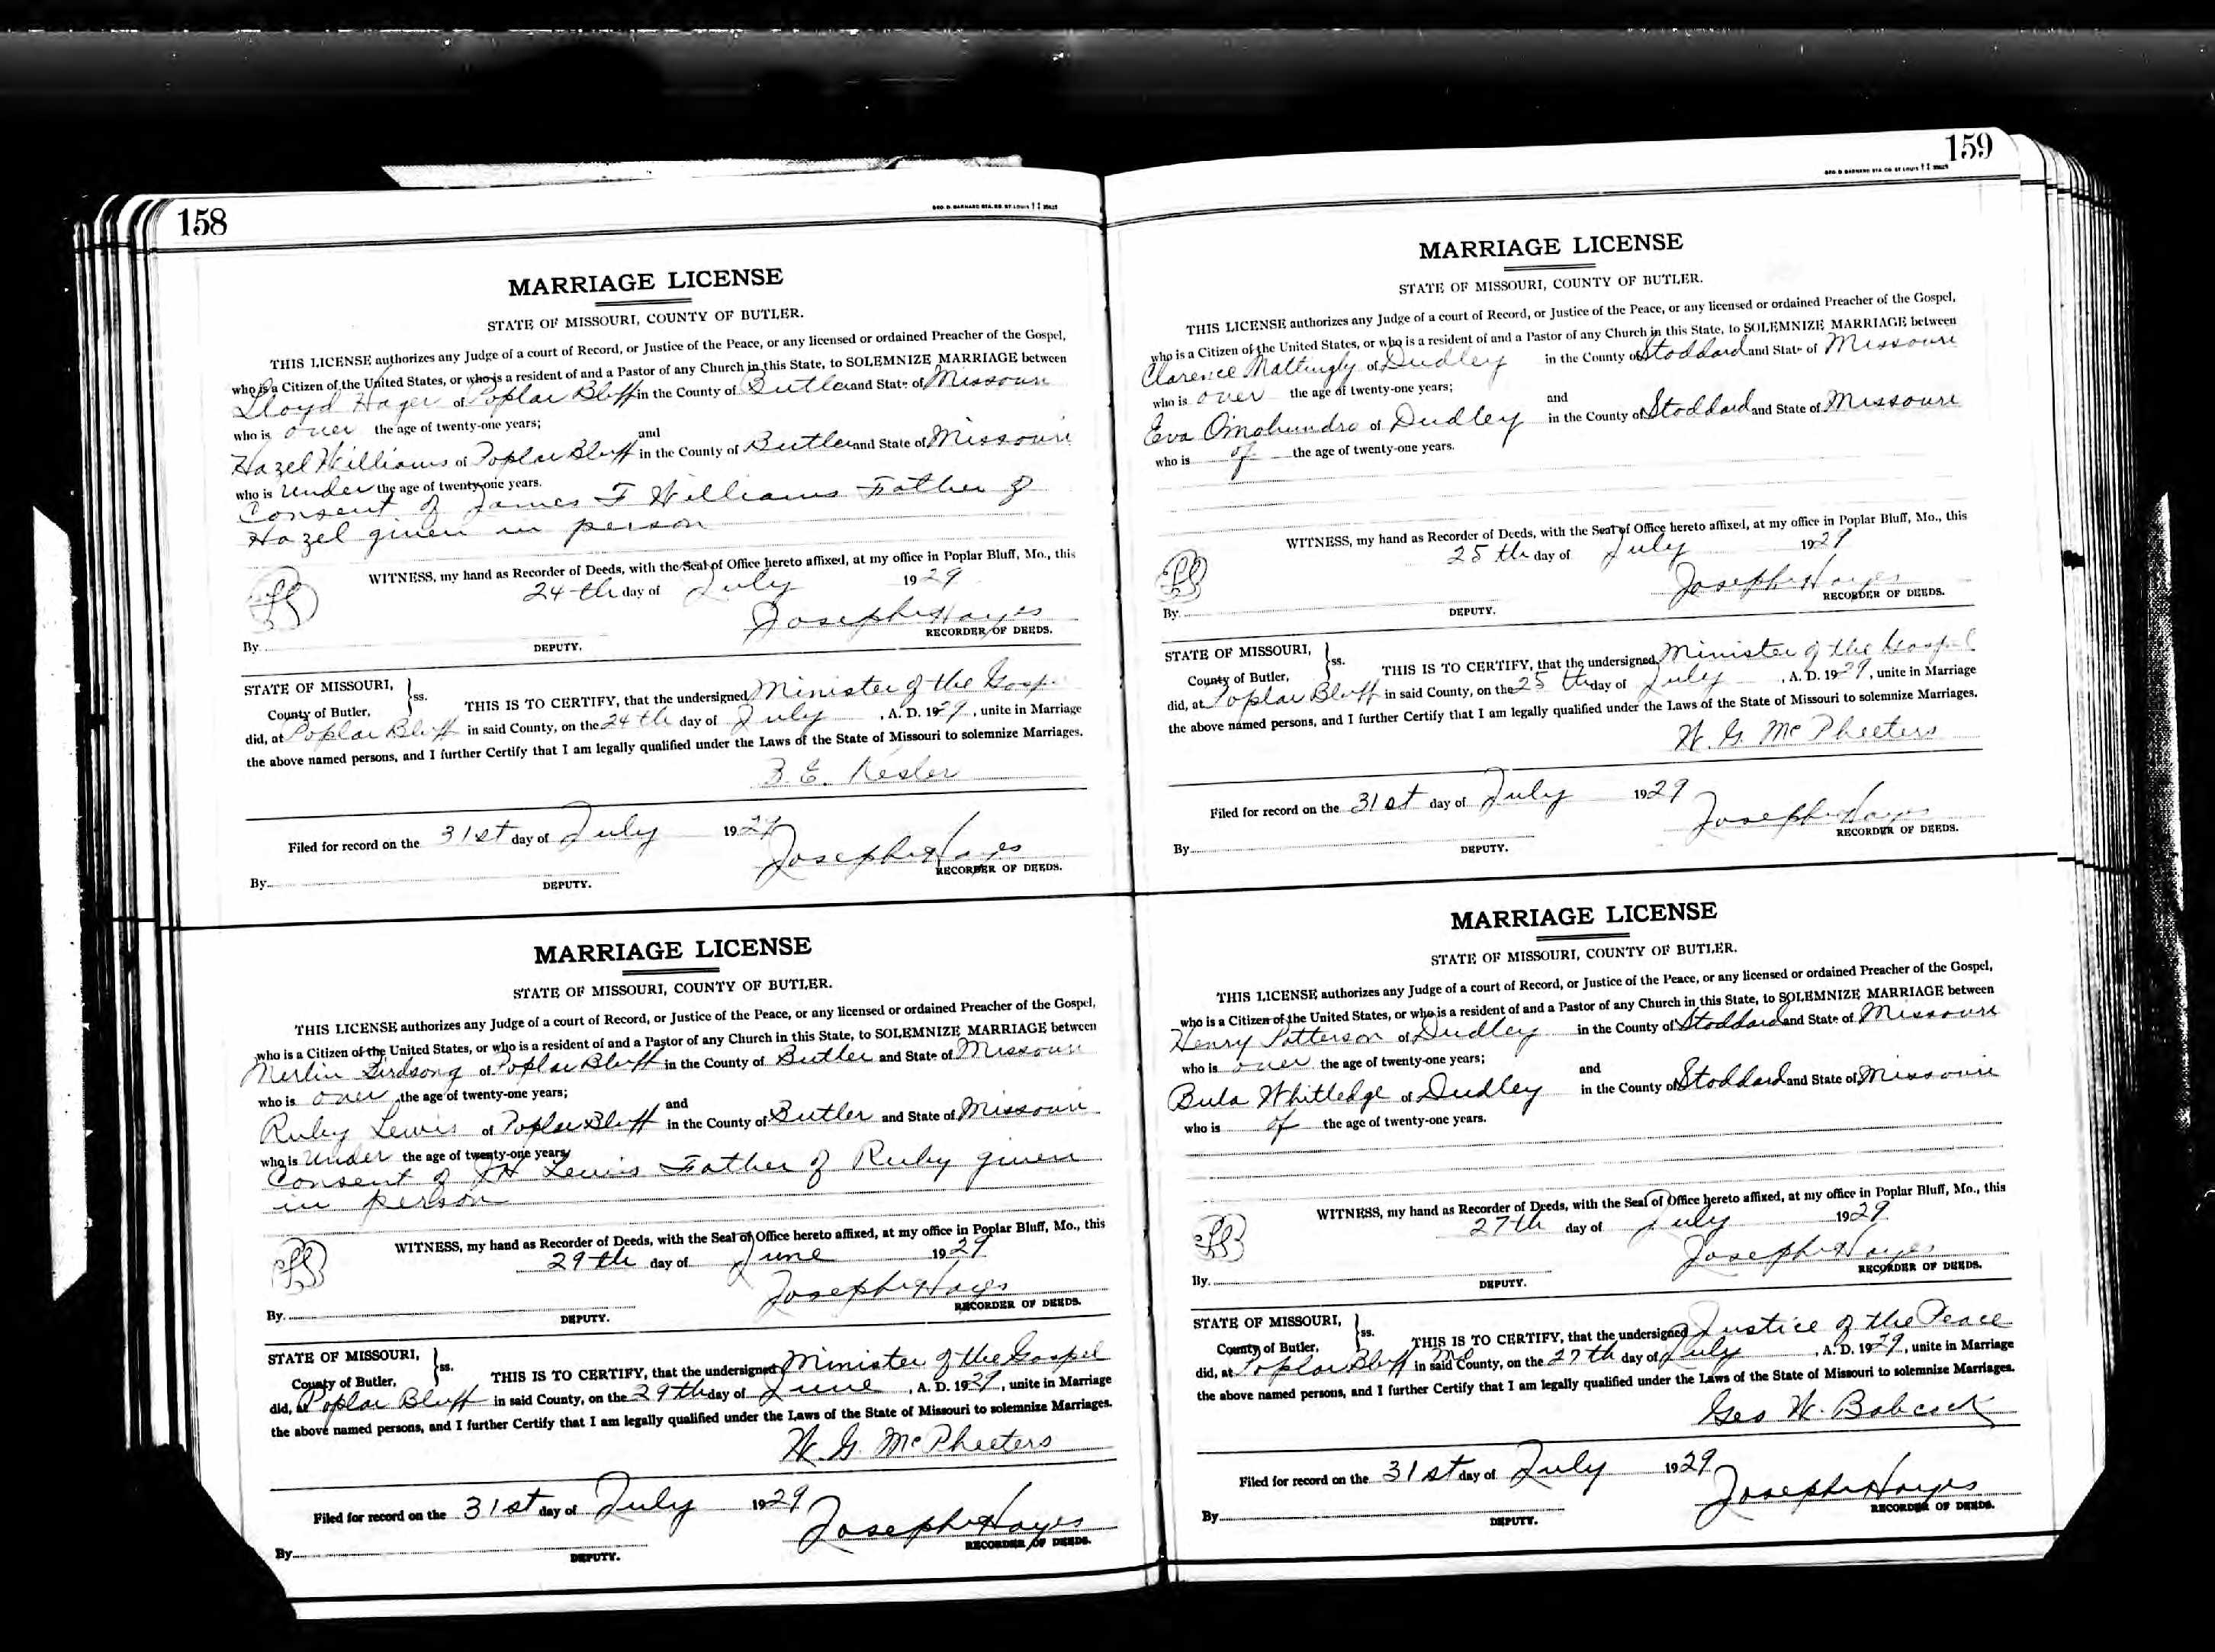 158
GEO. D. BARNARD STA. CO. ST. LOUIS
MARRIAGE LICENSE
STATE OF MISSOURI, COUNTY OF BUTLER.
THIS LICENSE authorizes any Judge of a court of Record, or Justice of the Peace, or any licensed or ordained Preacher of the Gospel,
who is a Citizen of the United States, or who is a resident of and a Pastor of any Church in this State, to SOLEMNIZE MARRIAGE between
Lloyd Hager of Poplar Bluff in the County of Butler and State of Missouri
who is over the age of twenty-one years;
and
Hazel Williams of Poplar Bluff in the County of Butler and State of Missouri
who is Under the age of twenty-one years.
Consent of James F Williams Father of
Hazel given in person
WITNESS, my hand as Recorder of Deeds, with the Seal of Office hereto affixed, at my office in Poplar Bluff, Mo., this
24th day of July 1929
Joseph Hayes
By DEPUTY. RECORDER OF DEEDS.
STATE OF MISSOURI, } ss. THIS IS TO CERTIFY, that the undersigned Minister of the Gospel
County of Butler,
did, at Poplar Bluff in said County, on the 24th day of July, A. D. 1929, unite in Marriage
the above named persons, and I further Certify that I am legally qualified under the Laws of the State of Missouri to solemnize Marriages.
B. E. Kesler
Filed for record on the 31st day of July 1929
Joseph Hayes
By DEPUTY. RECORDER OF DEEDS.
MARRIAGE LICENSE
STATE OF MISSOURI, COUNTY OF BUTLER.
THIS LICENSE authorizes any Judge of a court of Record, or Justice of the Peace, or any licensed or ordained Preacher of the Gospel,
who is a Citizen of the United States, or who is a resident of and a Pastor of any Church in this State, to SOLEMNIZE MARRIAGE between
Merlin Birdsong of Poplar Bluff in the County of Butler and State of Missouri
who is over the age of twenty-one years;
and
Ruby Lewis of Poplar Bluff in the County of Butler and State of Missouri
who is Under the age of twenty-one years
Consent of Lewis Father of Ruby given
in person
WITNESS, my hand as Recorder of Deeds, with the Seal of Office hereto affixed, at my office in Poplar Bluff, Mo., this
29th day of June 1929
Joseph Hayes
By. DEPUTY. RECORDER OF DEEDS.
STATE OF MISSOURI, } ss. THIS IS TO CERTIFY, that the undersigned Minister of the Gospel
County of Butler,
did, at Poplar Bluff in said County, on the 29th day of June, A. D. 1929, unite in Marriage
the above named persons, and I further Certify that I am legally qualified under the Laws of the State of Missouri to solemnize Marriages.
W. G. McPheeters
Filed for record on the 31st day of July 1929
Joseph Hayes
By DEPUTY. RECORDER OF DEEDS.
159
GEO. D. BARNARD STA. CO. ST. LOUIS
MARRIAGE LICENSE
STATE OF MISSOURI, COUNTY OF BUTLER.
THIS LICENSE authorizes any Judge of a court of Record, or Justice of the Peace, or any licensed or ordained Preacher of the Gospel,
who is a Citizen of the United States, or who is a resident of and a Pastor of any Church in this State, to SOLEMNIZE MARRIAGE between
Clarence Mattingly of Dudley in the County of Stoddard and State of Missouri
who is over the age of twenty-one years;
and
Eva Omohundro of Dudley in the County of Stoddard and State of Missouri
who is of the age of twenty-one years.
WITNESS, my hand as Recorder of Deeds, with the Seal of Office hereto affixed, at my office in Poplar Bluff, Mo., this
25th day of July 1929
Joseph Hayes
By. DEPUTY. RECORDER OF DEEDS.
STATE OF MISSOURI, } ss. THIS IS TO CERTIFY, that the undersigned Minister of the Gospel
County of Butler,
did, at Poplar Bluff in said County, on the 25th day of July, A. D. 1929, unite in Marriage
the above named persons, and I further Certify that I am legally qualified under the Laws of the State of Missouri to solemnize Marriages.
W. G. McPheeters
Filed for record on the 31st day of July 1929
Joseph Hayes
By DEPUTY. RECORDER OF DEEDS.
MARRIAGE LICENSE
STATE OF MISSOURI, COUNTY OF BUTLER.
THIS LICENSE authorizes any Judge of a court of Record, or Justice of the Peace, or any licensed or ordained Preacher of the Gospel,
who is a Citizen of the United States, or who is a resident of and a Pastor of any Church in this State, to SOLEMNIZE MARRIAGE between
Henry Patterson of Dudley in the County of Stoddard and State of Missouri
who is over the age of twenty-one years;
and
Bula Whitledge of Dudley in the County of Stoddard and State of Missouri
who is of the age of twenty-one years.
WITNESS, my hand as Recorder of Deeds, with the Seal of Office hereto affixed, at my office in Poplar Bluff, Mo., this
27th day of July 1929
Joseph Hayes
By. DEPUTY. RECORDER OF DEEDS.
STATE OF MISSOURI, } ss. THIS IS TO CERTIFY, that the undersigned Justice of the Peace
County of Butler,
did, at Poplar Bluff Mo in said County, on the 27th day of July, A. D. 1929, unite in Marriage
the above named persons, and I further Certify that I am legally qualified under the Laws of the State of Missouri to solemnize Marriages.
Geo W. Babcock
Filed for record on the 31st day of July 1929
Joseph Hayes
By DEPUTY. RECORDER OF DEEDS.